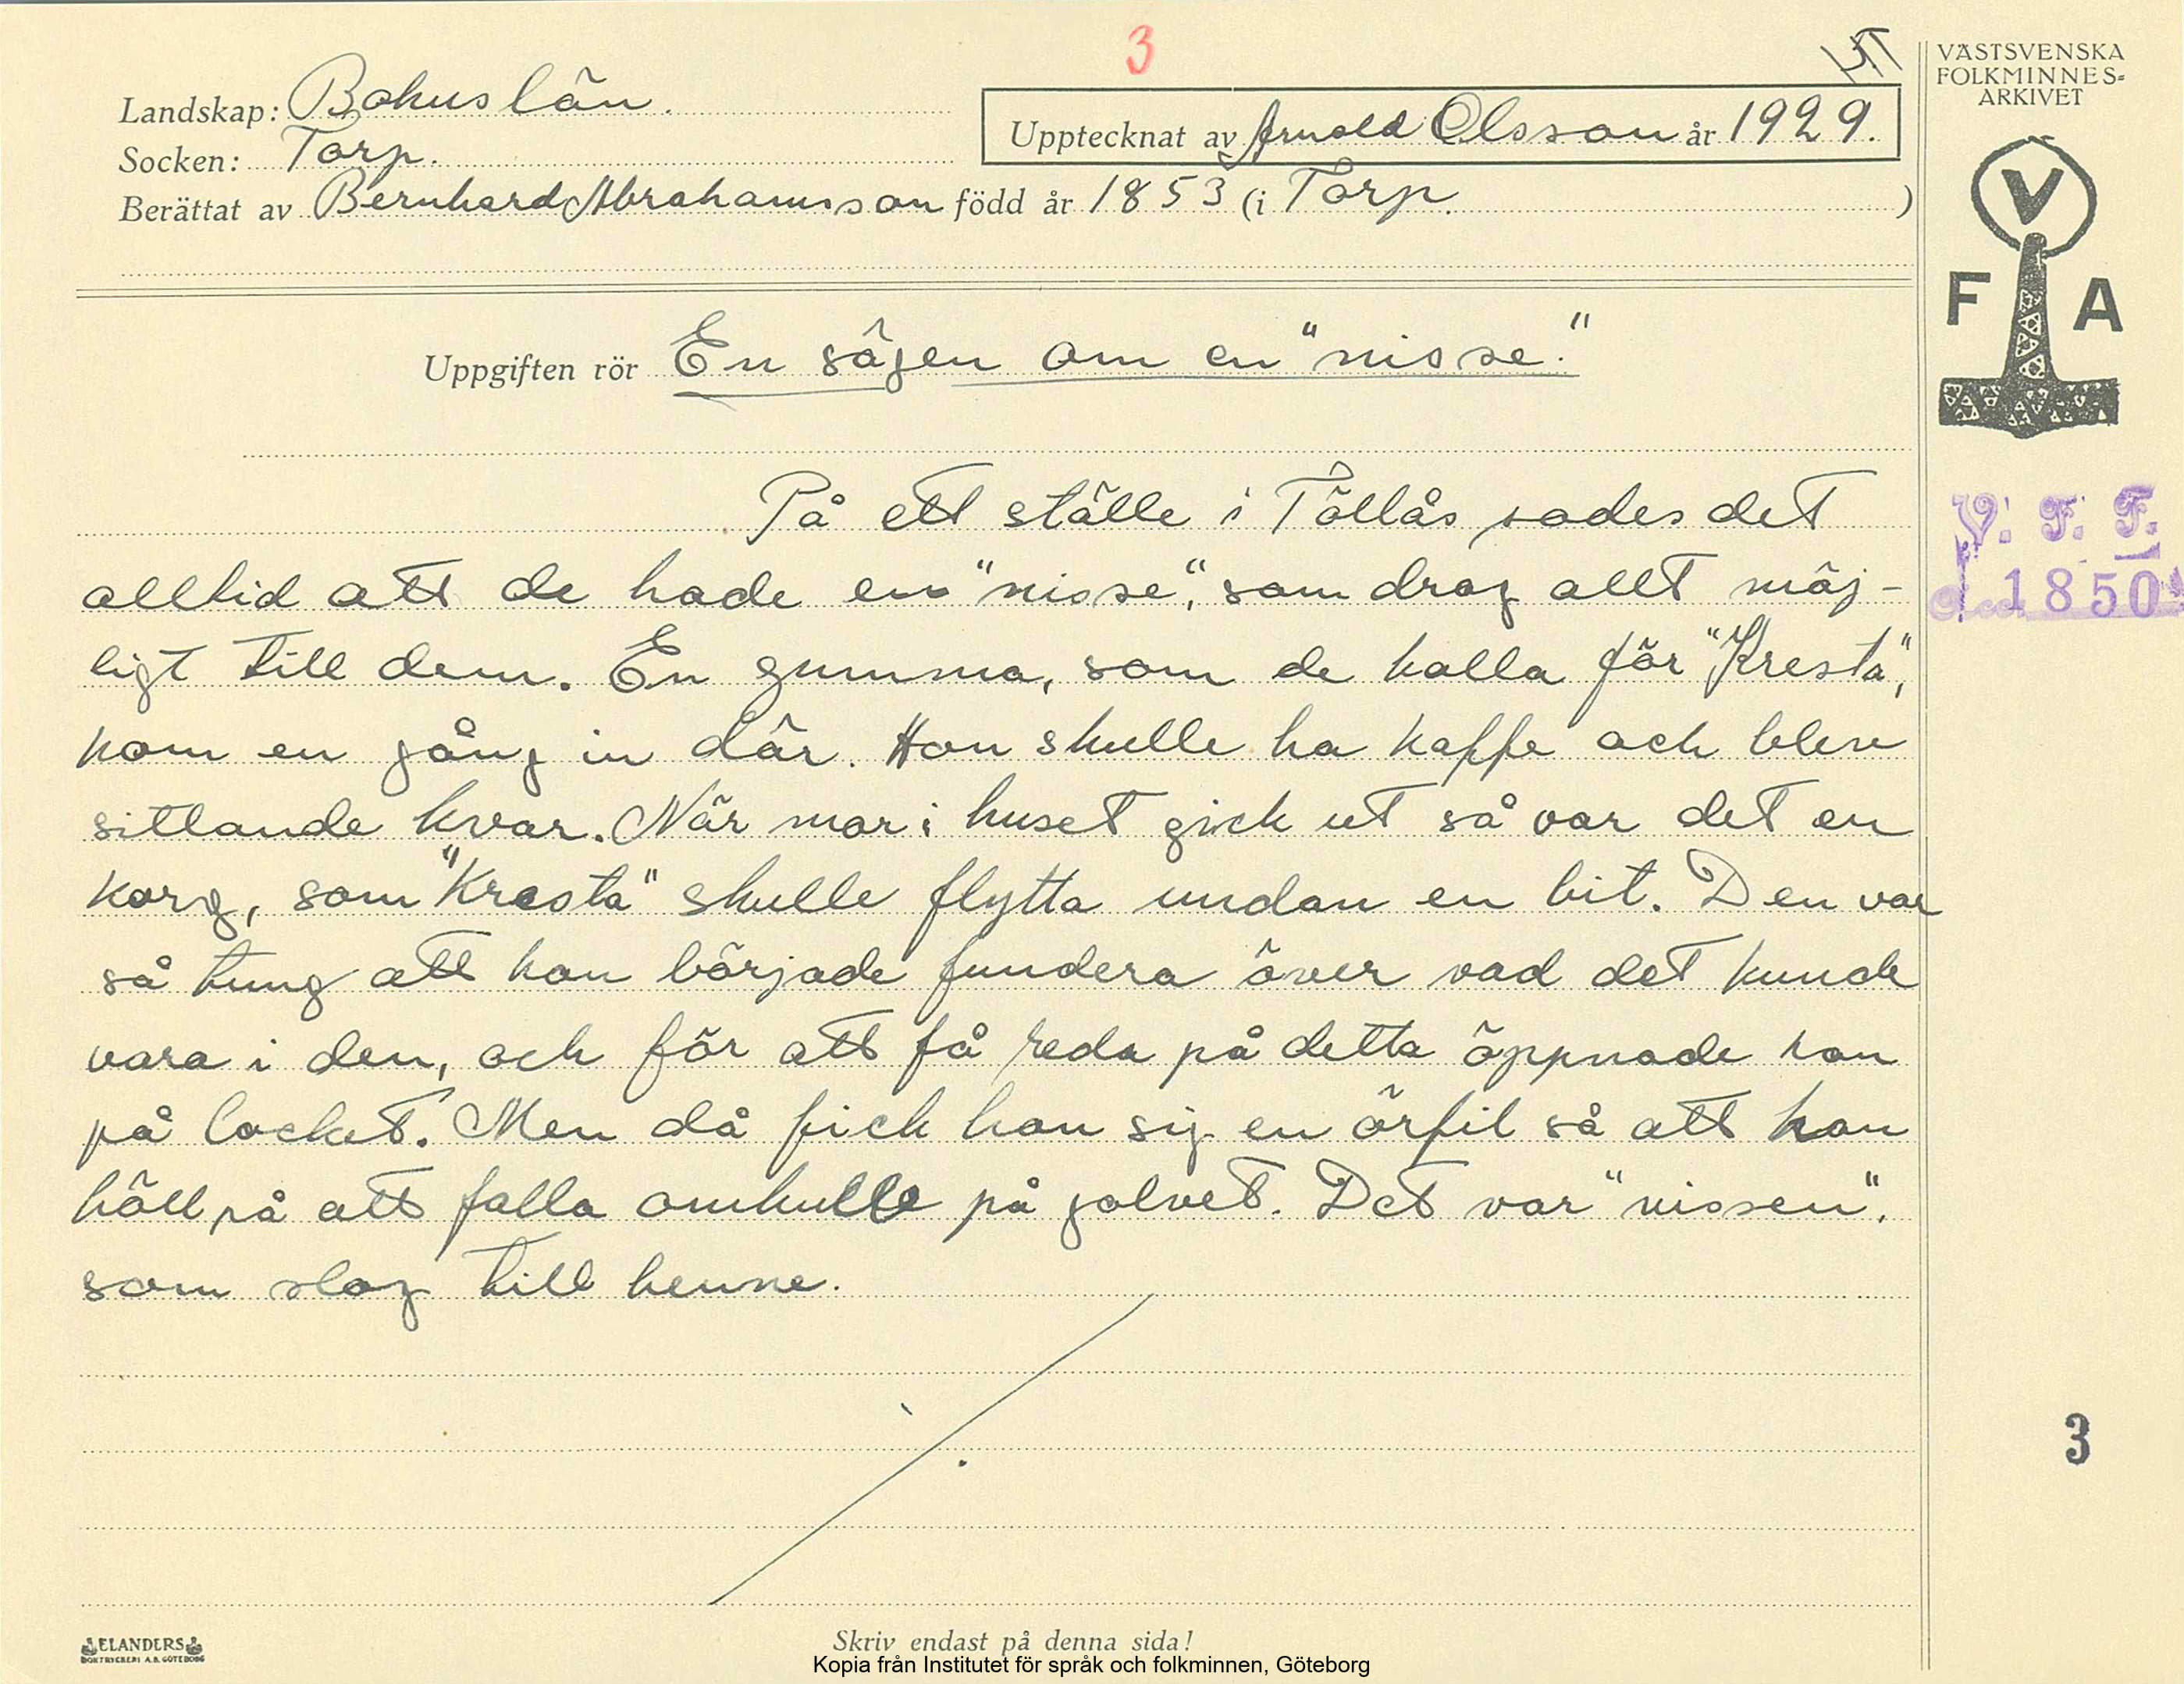 3
VÄSTSVENSKA
FOLKMINNES-
ARKIVET
Landskap: Bohuslän.
Upptecknat av Arnold Olsson år 1929.
Socken: Torp.
Berättat av Bernhard Abrahamsson född år 1853 (i Torp. )
V
F A
Uppgiften rör En sägen om en "nisse."
V. F. F.
Acc. 1850
På ett ställe i Töllås sades det
alltid att de hade en "nisse", som drog allt möj-
ligt till dem. En gumma, som de kalla för "Kresta",
kom en gång in där. Hon skulle ha kaffe och blev
sittande kvar. När mor i huset gick ut så var det en
korg, som "Kresta" skulle flytta undan en bit. Den var
så tung att hon började fundera över vad det kunde
vara i den, och för att få reda på detta öppnade hon
på locket. Men då fick hon sig en örfil så att hon
höll på att falla omkulle på golvet. Det var "nissen".
som slog till henne.
3
ELANDERS
BOKTRYCKERI A.B. GÖTEBORG
Skriv endast på denna sida!
Kopia från Institutet för språk och folkminnen, Göteborg